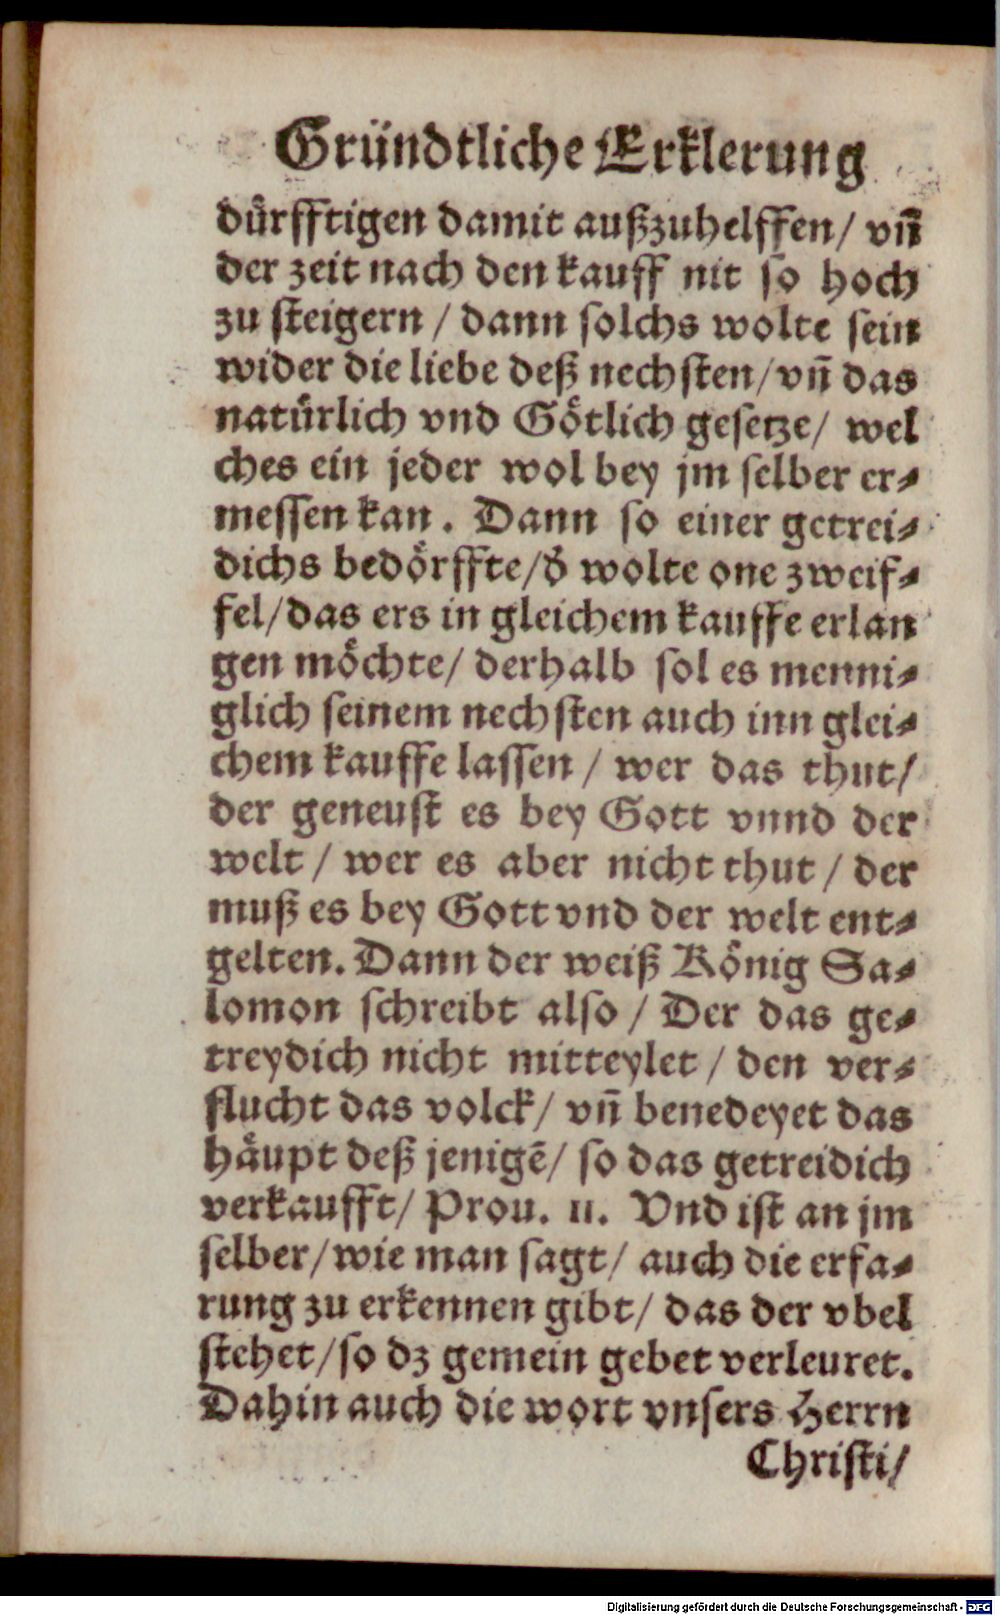 Gründtliche Erklerung
dürfftigen damit außzuhelffen/ vñ
der zeit nach den kauff nit so hoch
zu steigern / dann solchs wolte sein
wider die liebe deß nechsten/ vñ das
natürlich vnd Götlich gesetze/ wel
ches ein jeder wol bey jm selber er⸗
messen kan. Dann so einer getrei⸗
dichs bedörffte/ d̕ wolte one zweif⸗
fel/ das ers in gleichem kauffe erlan
gen möchte/ derhalb sol es menni⸗
glich seinem nechsten auch inn glei⸗
chem kauffe lassen / wer das thut/
der geneust es bey Gott vnnd der
welt / wer es aber nicht thut / der
muß es bey Gott vnd der welt ent⸗
gelten. Dann der weiß König Sa⸗
lomon schreibt also / Der das ge⸗
treydich nicht mitteylet / den ver⸗
flucht das volck/ vñ benedeyet das
häupt deß jenigē/ so das getreidich
verkaufft/ Prou. 11. Vnd ist an jm
selber/ wie man sagt/ auch die erfa⸗
rung zu erkennen gibt/ das der vbel
stehet/ so dz gemein gebet verleuret.
Dahin auch die wort vnsers Herrn
Christi/
Digitalisierung gefördert durch die Deutsche Forschungsgemeinschaft - DFG